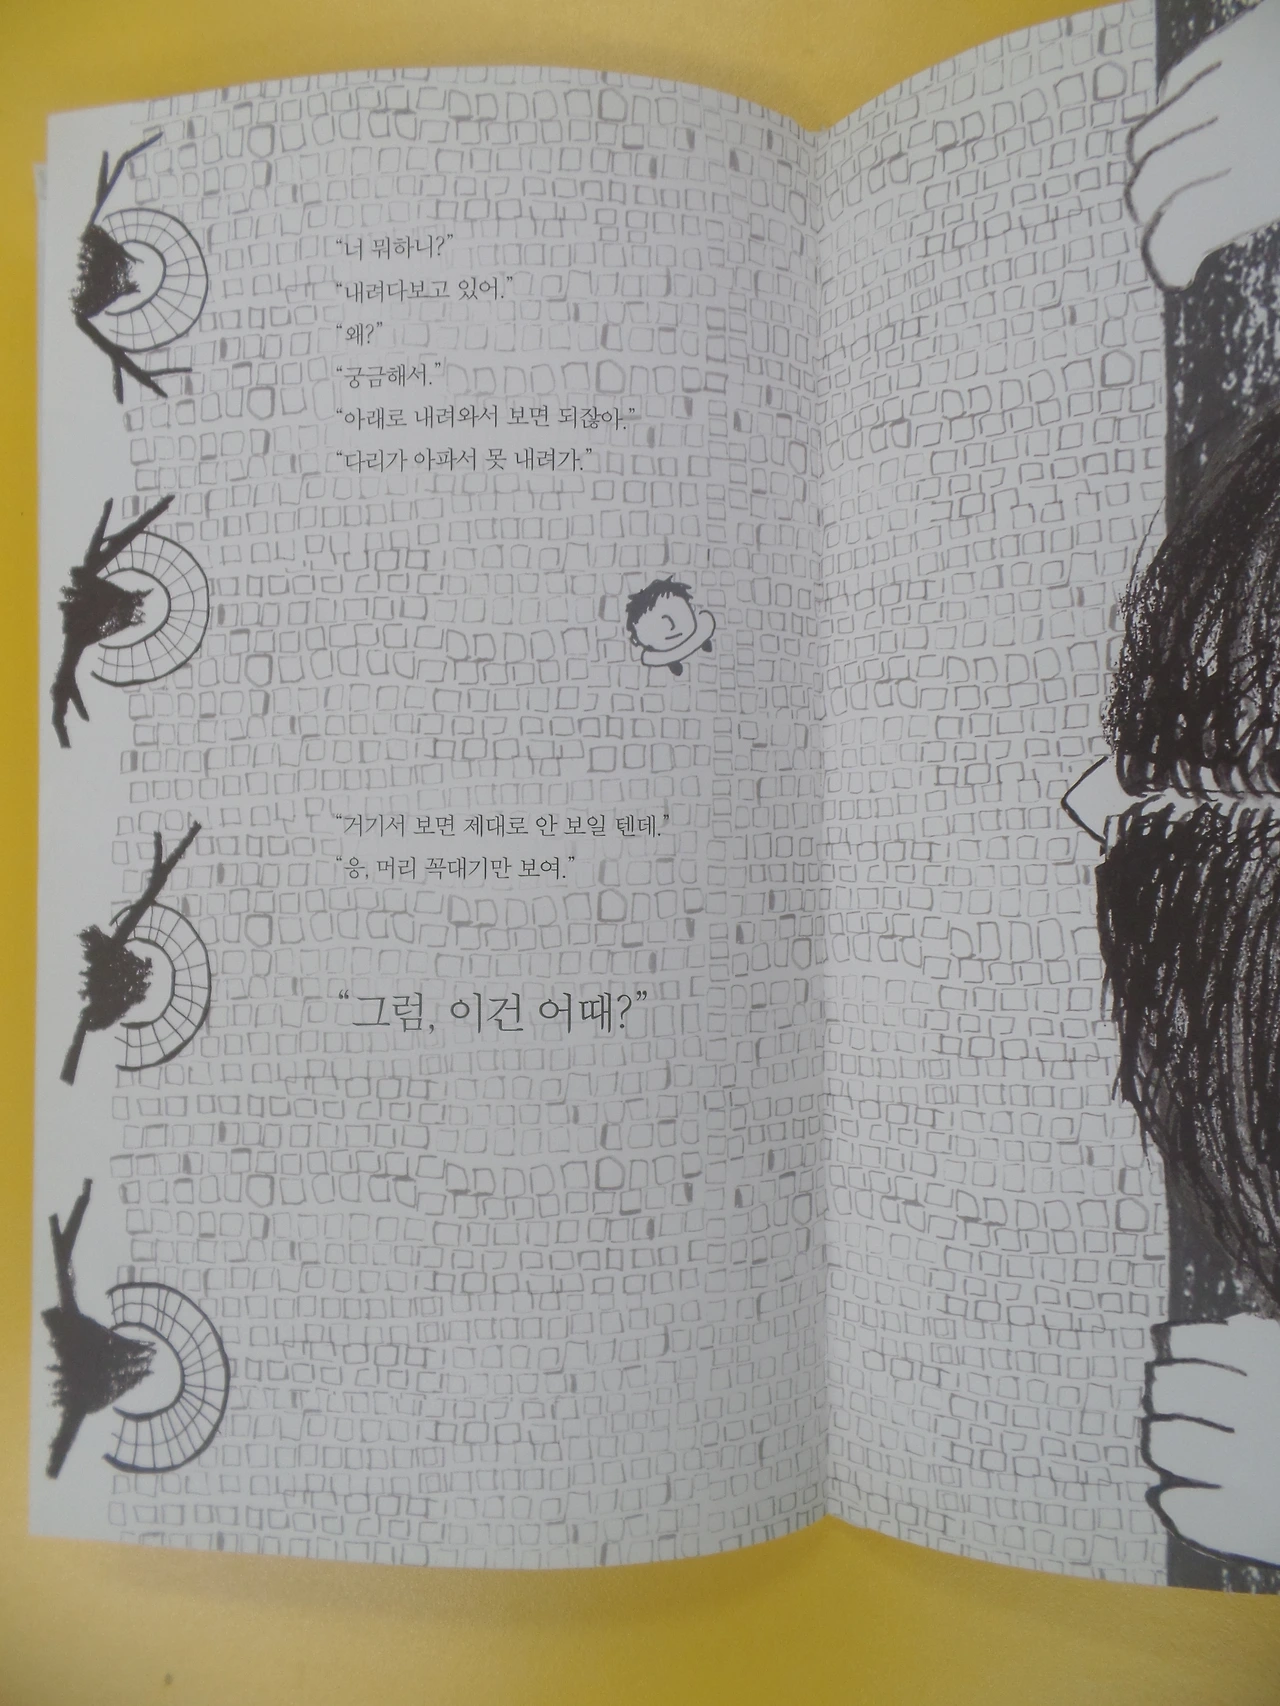 “너 뭐하니?”
“내려다보고 있어.”
“왜?”
“궁금해서.”
“아래로 내려와서 보면 되잖아.”
“다리가 아파서 못 내려가.”
“거기서 보면 제대로 안 보일 텐데.”
“응, 머리 꼭대기만 보여.”
“그럼, 이건 어때?”